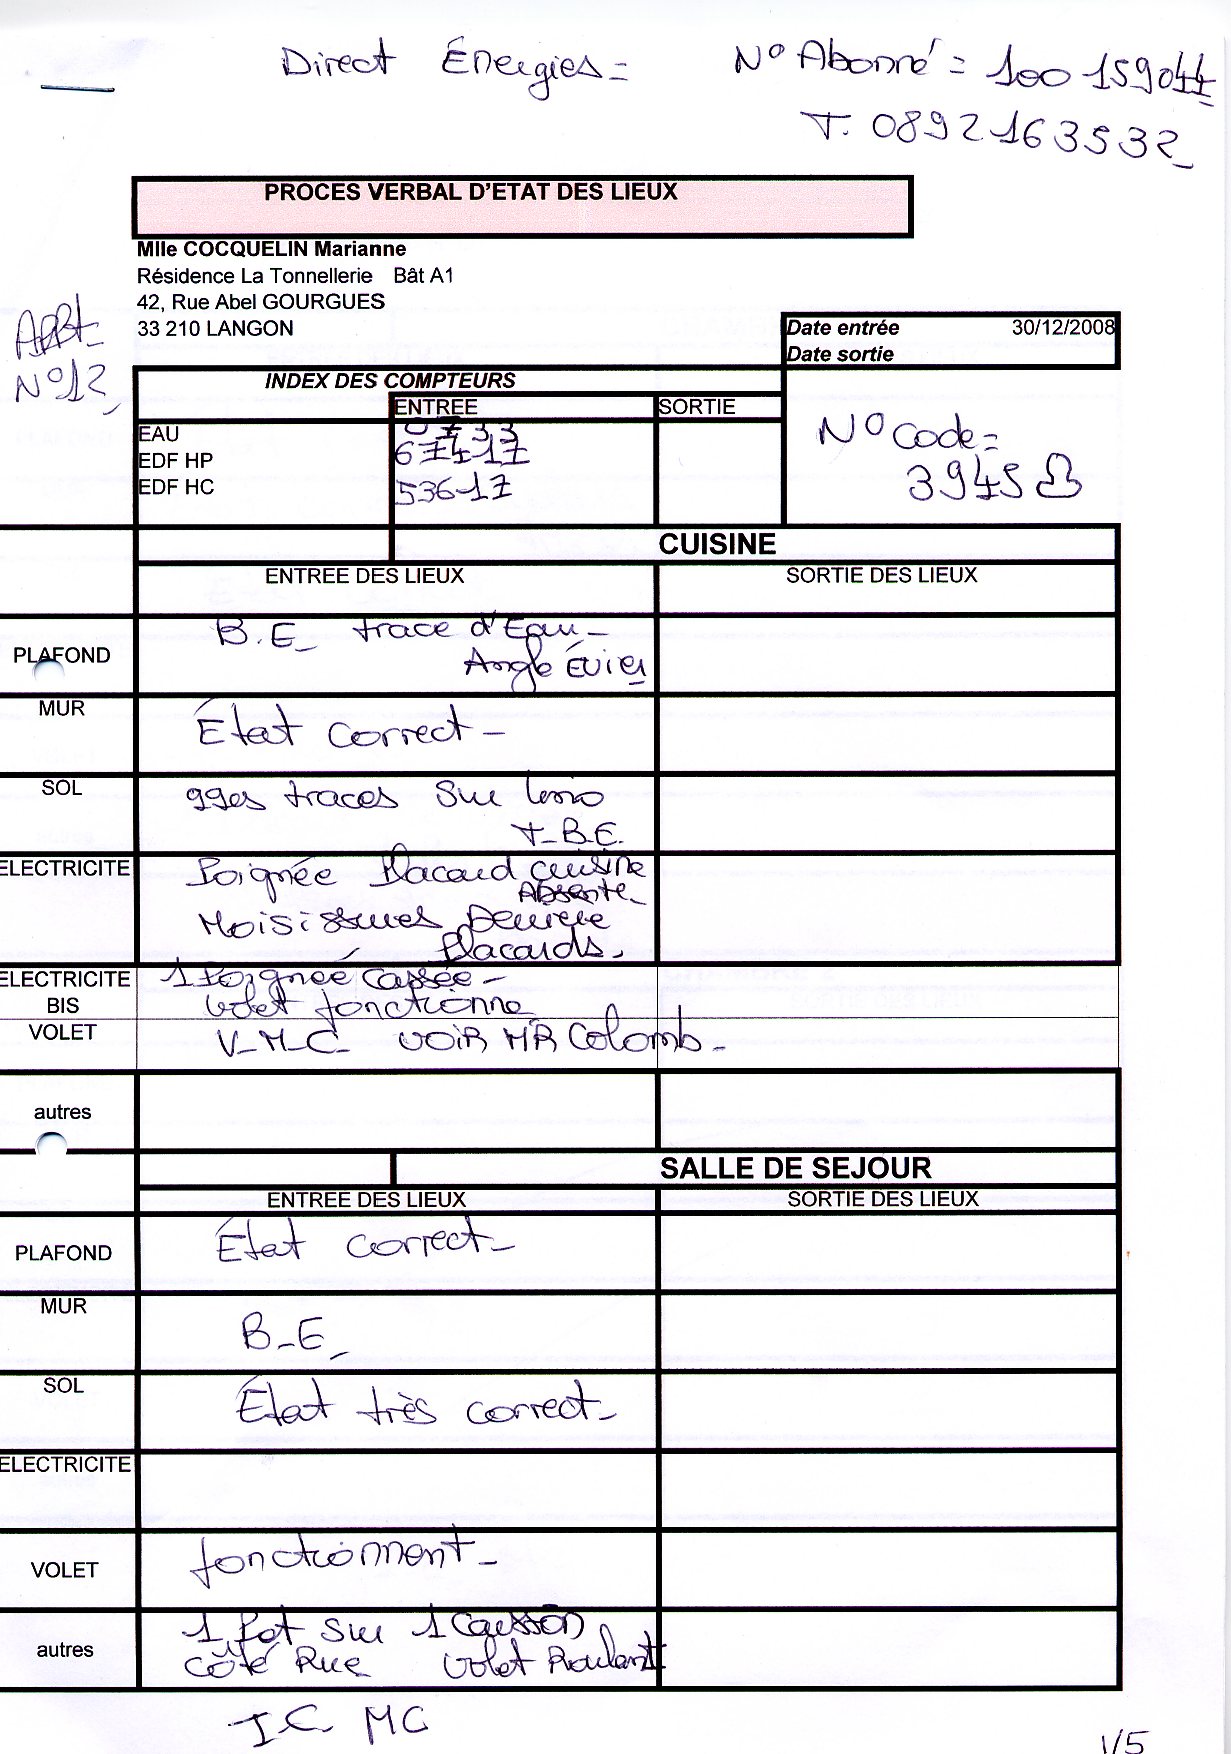 Direct Énergies = N° Abonné = 100 159044
T. 0892163532
PROCES VERBAL D'ETAT DES LIEUX
Mlle COCQUELIN Marianne
Résidence La Tonnellerie Bât A1
42, Rue Abel GOURGUES
33 210 LANGON
APPt
N°12
Date entrée 30/12/2008
Date sortie
INDEX DES COMPTEURS
ENTREE SORTIE
EAU 0733
EDF HP 67417
EDF HC 53617
N° Code =
3945
CUISINE
ENTREE DES LIEUX SORTIE DES LIEUX
PLAFOND B.E_ trace d'Eau_
Angle Évier
MUR État correct_
SOL qqes traces sur lino
T_B.E.
ELECTRICITE Poignée Placard cuisine
Absente_
Moisissures Derriere
Placards.
ELECTRICITE BIS 1 Poignée Cassée_
Volet fonctionne
VOLET V_M_C_ VOIR MR Colomb_
autres
SALLE DE SEJOUR
ENTREE DES LIEUX SORTIE DES LIEUX
PLAFOND État correct_
MUR B_E_
SOL État très correct_
ELECTRICITE
VOLET fonctionnent_
autres 1 Pot sur 1 Caisson
côté Rue Volet Roulant
IC MC
1/5